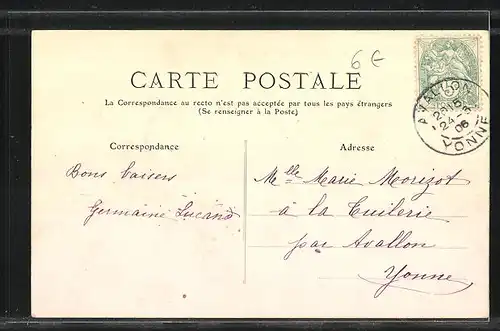 6 €
CARTE POSTALE
La Correspondance au recto n'est pas acceptée par tous les pays étrangers
(Se renseigner à la Poste)
AVALLON
24 -3
06
YONNE
Correspondance
Adresse
Bons baisers
Germaine
Melle Marie Morizot
à la Tuilerie
par Avallon
Yonne